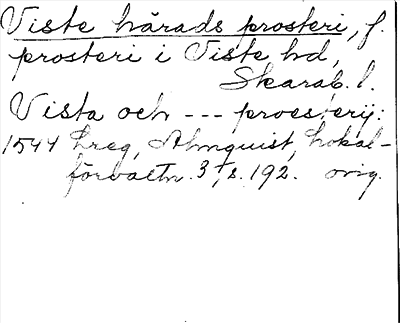 Viste härads prosteri, f.
prosteri i Viste hd,
Skarab. l.
Vista och --- proesterij:
1544 Lreg, Almquist, Lokal-
förvaltn. 3, s. 192. orig.